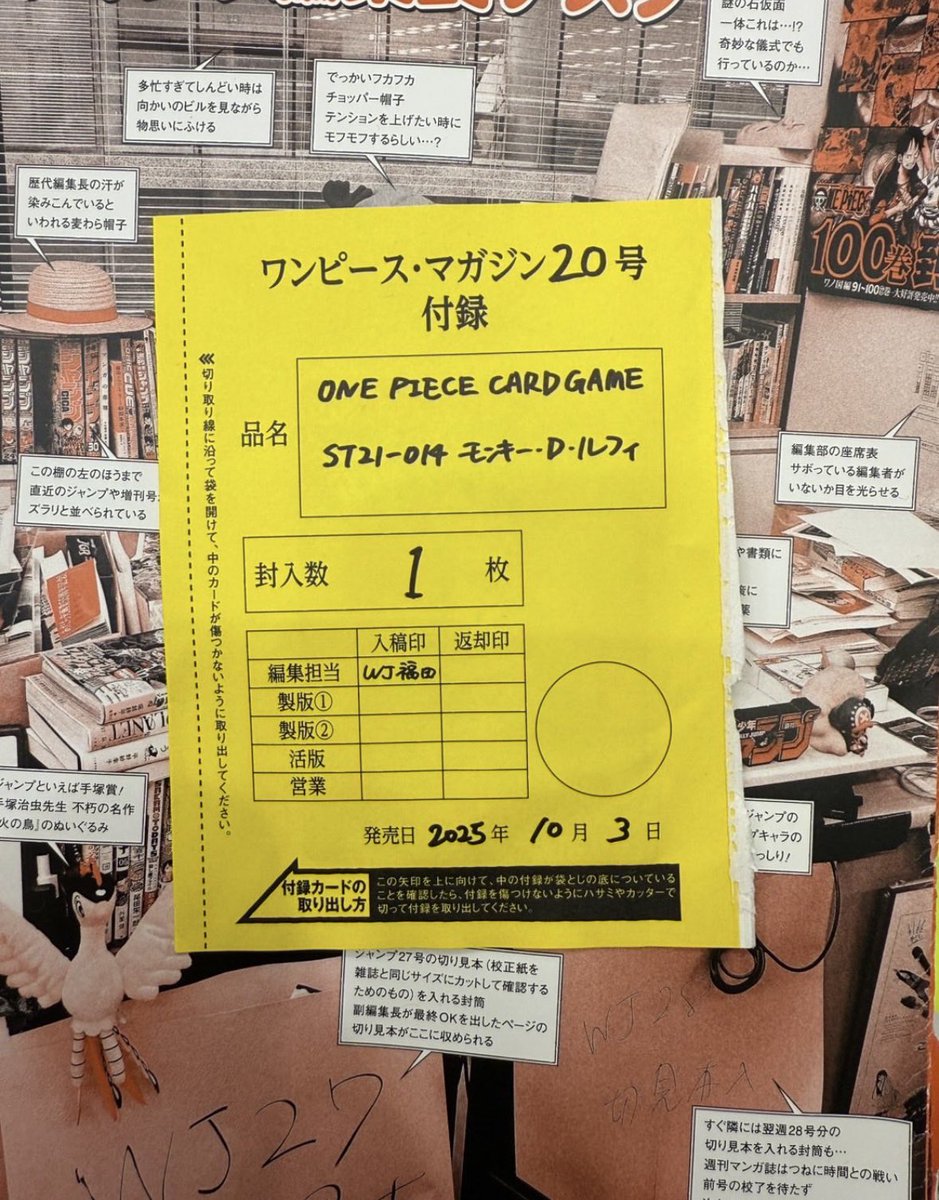 謎の石仮面
一体これは…!?
奇妙な儀式でも
行っているのか…
多忙すぎてしんどい時は
向かいのビルを見ながら
物思いにふける
でっかいフカフカ
チョッパー帽子
テンションを上げたい時に
モフモフするらしい…?
歴代編集長の汗が
染みこんでいると
いわれる麦わら帽子
ONE PIECE
100巻
ワノ国編 91~100巻 大好評発売中!!
ワンピース・マガジン20号
付録
≪切り取り線に沿って袋を開けて、中のカードが傷つかないように取り出してください。
品名
ONE PIECE CARD GAME
ST21-014 モンキー・D・ルフィ
封入数 1 枚
入稿印 返却印
編集担当 WJ福田
製版①
製版②
活版
営業
発売日 2025年 10月 3日
付録カードの
取り出し方
この矢印を上に向けて、中の付録が袋とじの底についている
ことを確認したら、付録を傷つけないようにハサミやカッターで
切って付録を取り出してください。
この棚の左のほうまで
直近のジャンプや増刊号
ズラリと並べられている
編集部の座席表
サボっている編集者が
いないか目を光らせる
や書類に
に
薬
PLANET
少年
ジャンプ
ジャンプといえば手塚賞!
手塚治虫先生 不朽の名作
火の鳥』のぬいぐるみ
ジャンプの
プキャラの
っしり!
ジャンプ27号の切り見本(校正紙を
雑誌と同じサイズにカットして確認する
ためのもの)を入れる封筒
副編集長が最終OKを出したページの
切り見本がここに収められる
WJ27
WJ28
切見本入
すぐ隣には翌週28号分の
切り見本を入れる封筒も…
週刊マンガ誌はつねに時間との戦い
前号の校了を待たず